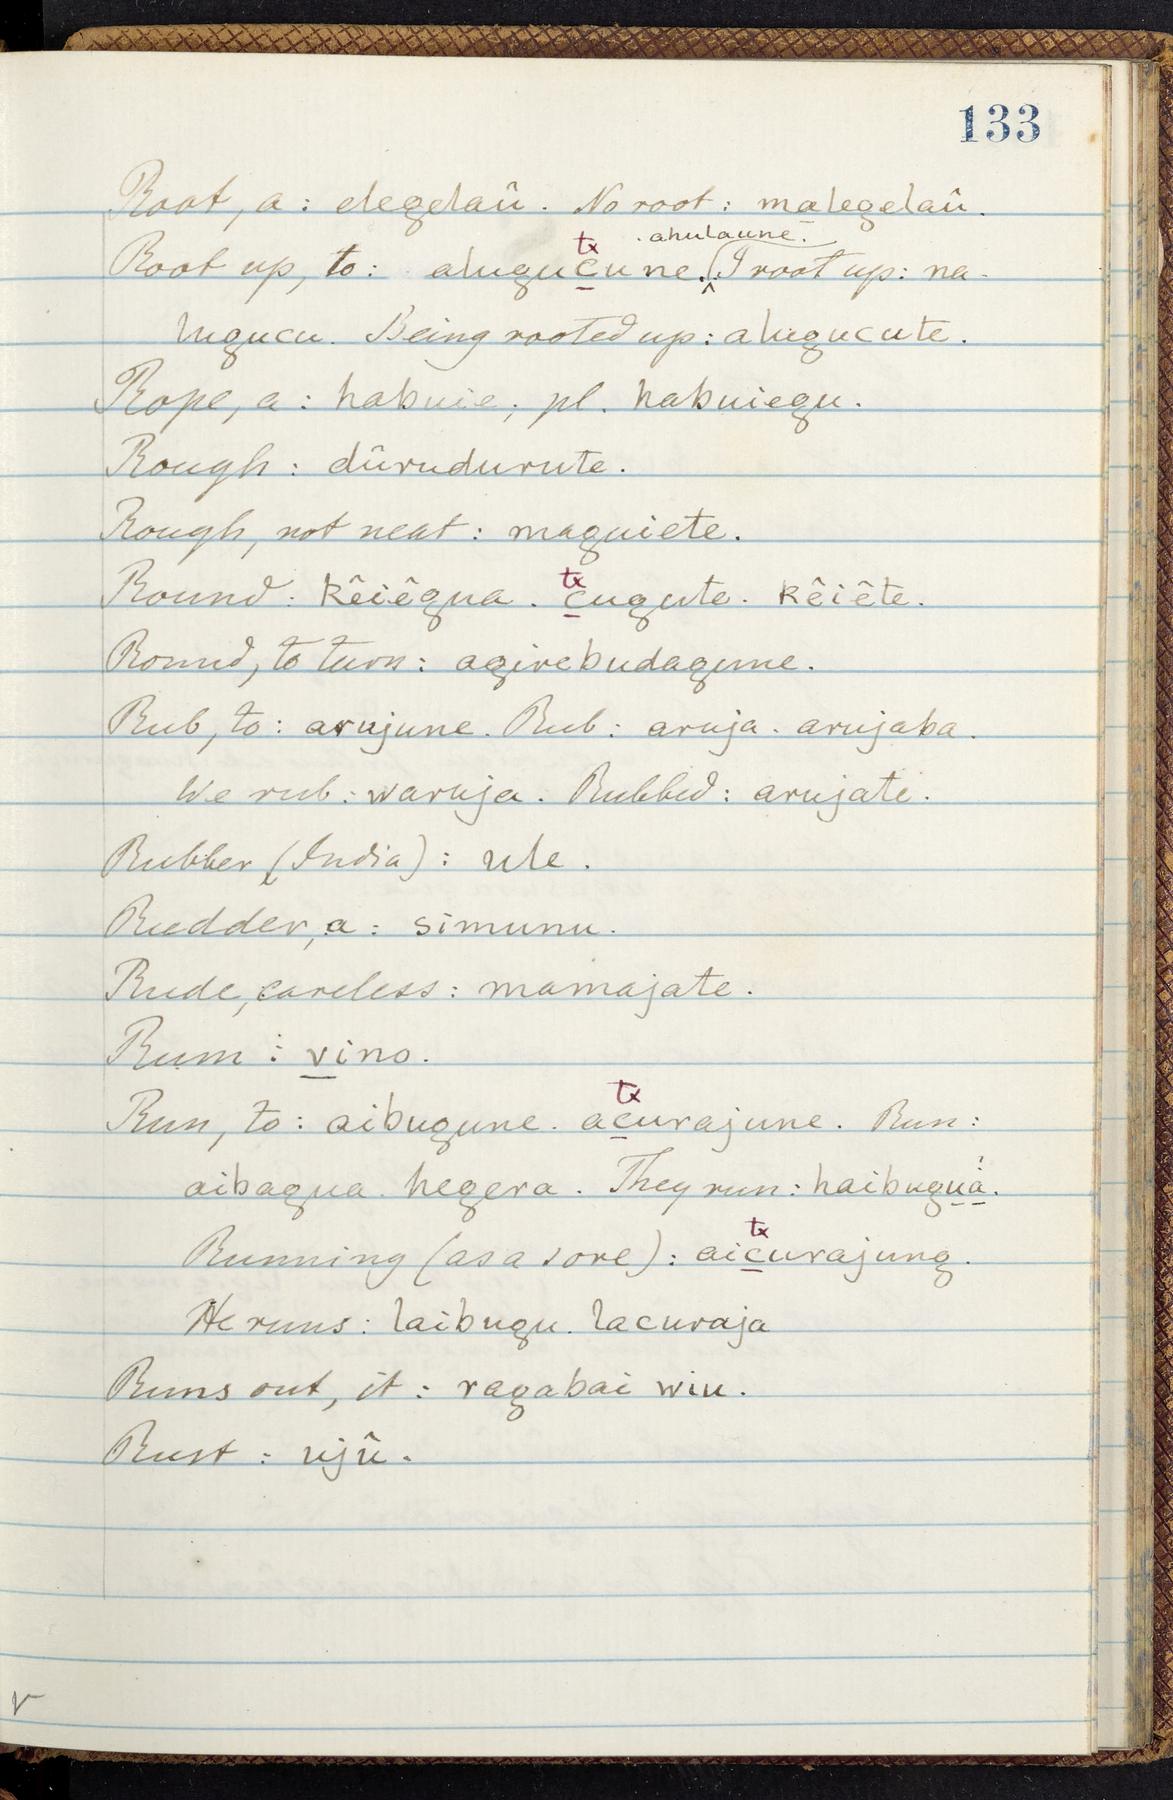 133
Root, a: elegelaû. No root: malegelaû.
tx . ahulaune.
Root up, to: alugucune. I root up: na-
lugucu. Being rooted up: alugucute.
Rope, a: habuie; pl. habuiegu.
Rough: dûrudurute.
Rough, not neat: maguiete.
tx
Round: kêiêgua. cugute. kêiête.
Round, to turn: agirebudagune.
Rub, to: arujune. Rub: aruja. arujaba.
We rub: waruja. Rubbed: arujate.
Rubber (India): ule.
Rudder, a: simunu.
Rude, careless: mamajate.
Rum: vino.
tx
Run, to: aibugune. acurajune. Run:
aibagua. hegera. They run: haibuguá.
tx
Running (as a sore): aicurajung.
He runs: laibugu. lacuraja
Runs out, it: ragabai wiu.
Rust: ujû.